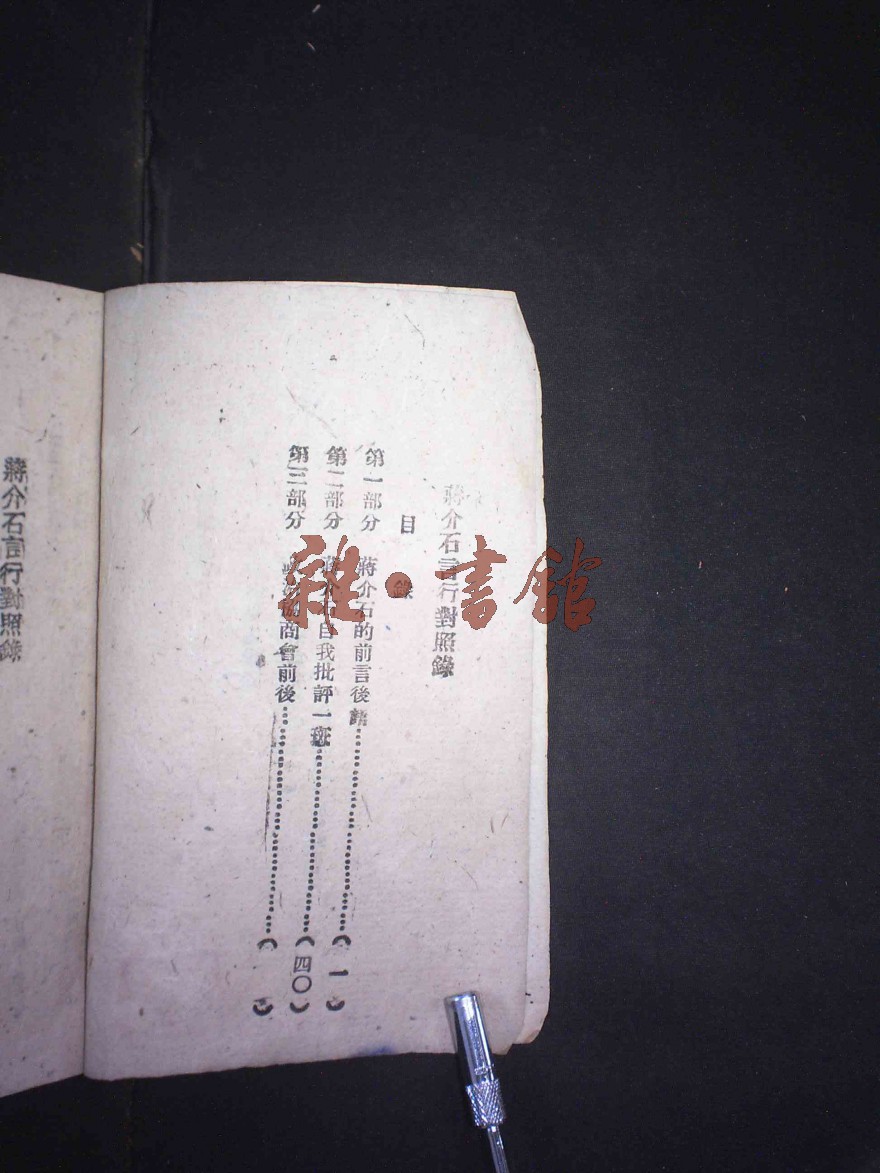 蔣介石言行對照錄
目錄
第一部分 蔣介石的前言後語……(一)
第二部分 蔣介石自我批評一斑……(四〇)
第三部分 協商會前後……( )
蔣介石言行對照錄
雜·書館